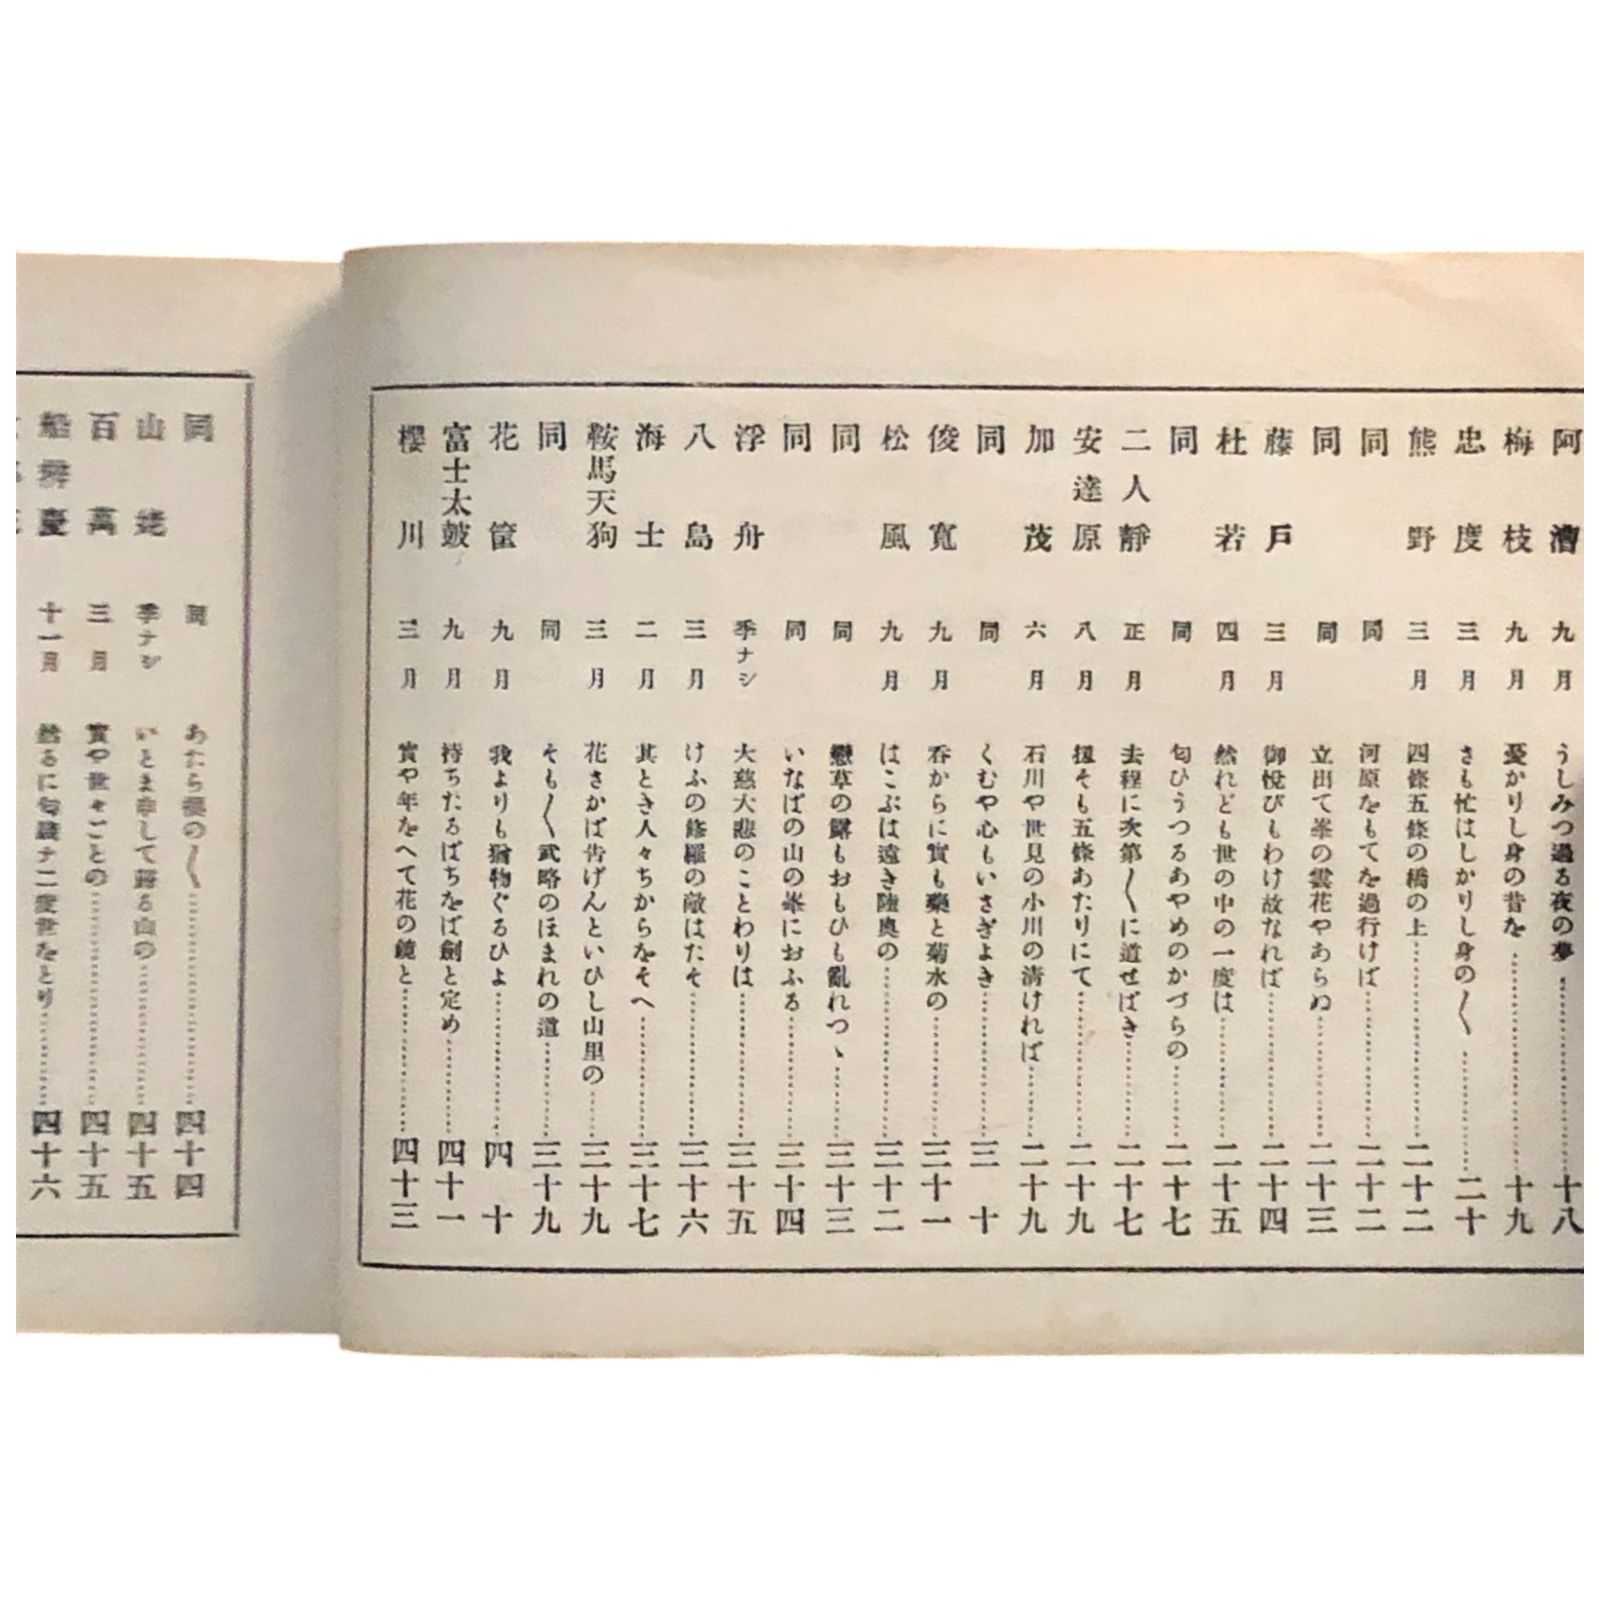 阿漕 九月 うしみつ過る夜の夢 十八
梅枝 九月 憂かりし身の昔を 十九
忠度 三月 さも忙はしかりし身の〱 二十
熊野 三月 四條五條の橋の上 二十二
同 同 河原をもてを過行けば 二十二
同 同 立出て峯の雲花やあらぬ 二十三
藤戶 三月 御悅びもわけ故なれば 二十四
杜若 四月 然れども世の中の一度は 二十五
同 同 匂ひうつるあやめのかづらの 二十七
二人靜 正月 去程に次第〱に道せばき 二十七
安達原 八月 扨そも五條あたりにて 二十九
加茂 六月 石川や世見の小川の淸ければ 二十九
同 同 くむや心もいさぎよき 三十
俊寬 九月 呑からに實も藥と菊水の 三十一
松風 九月 はこぶは遠き陸奥の 三十二
同 同 戀草の露もおもひも亂れつゝ 三十三
同 同 いなばの山の峯におふる 三十四
浮舟 季ナシ 大慈大悲のことわりは 三十五
八島 三月 けふの修羅の敵はたそ 三十六
海士 二月 其とき人々ちからをそへ 三十七
鞍馬天狗 三月 花さかば吿げんといひし山里の 三十九
同 同 そも〱武略のほまれの道 三十九
花筐 九月 我よりも猶物ぐるひよ 四十
富士太鼓 九月 持ちたるばちをば劍と定め 四十一
櫻川 三月 實や年をへて花の鏡と 四十三
同 同 あたら櫻の〱 四十四
山姥 季ナシ いとま申して歸る山の 四十五
百萬 三月 實や世々ごとの 四十五
船辨慶 十一月 然るに勾踐ナ二度世をとり 四十六